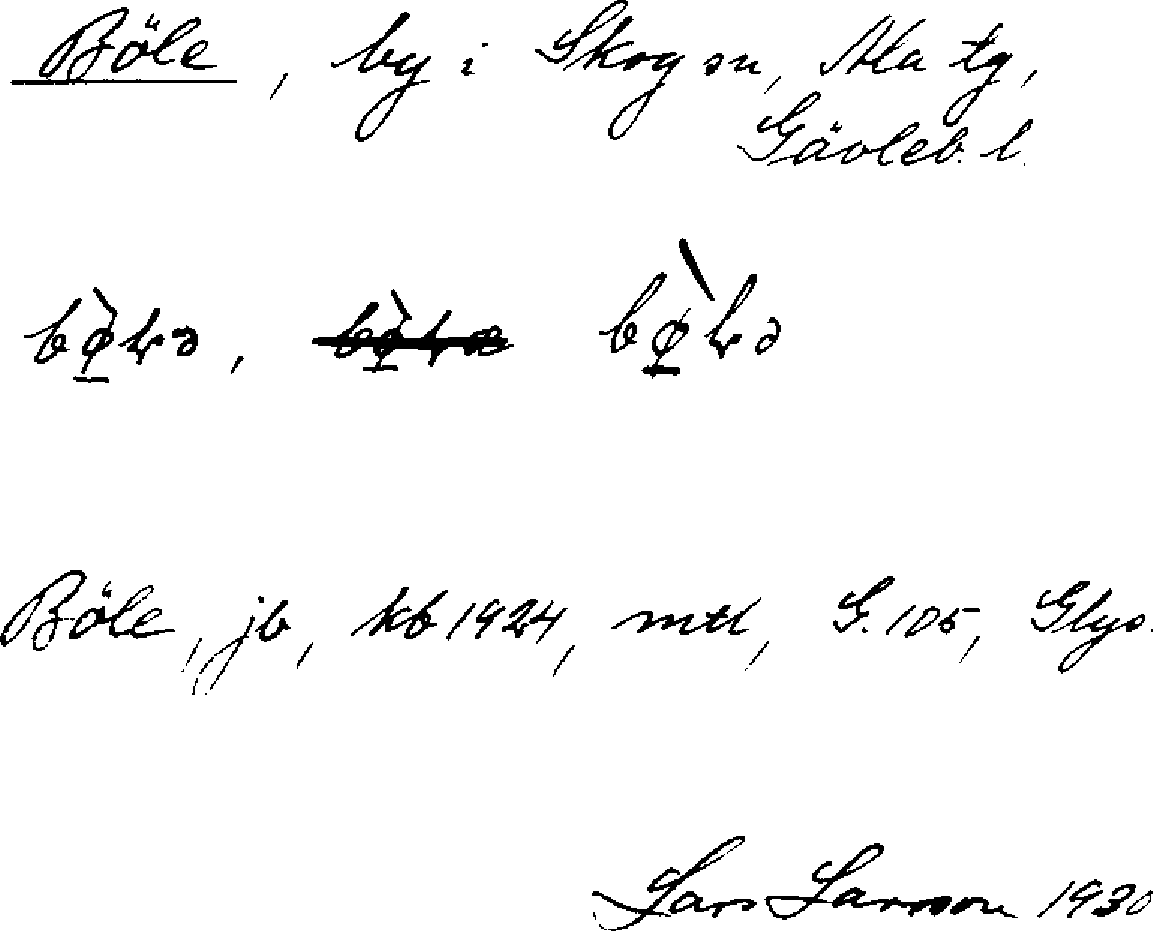 Böle, by i Skog sn, Ala tg,
Gävleb. l.
Böle, jb, kb 1924, mtl, G. 105, Glys.
Lars Larsson 1930